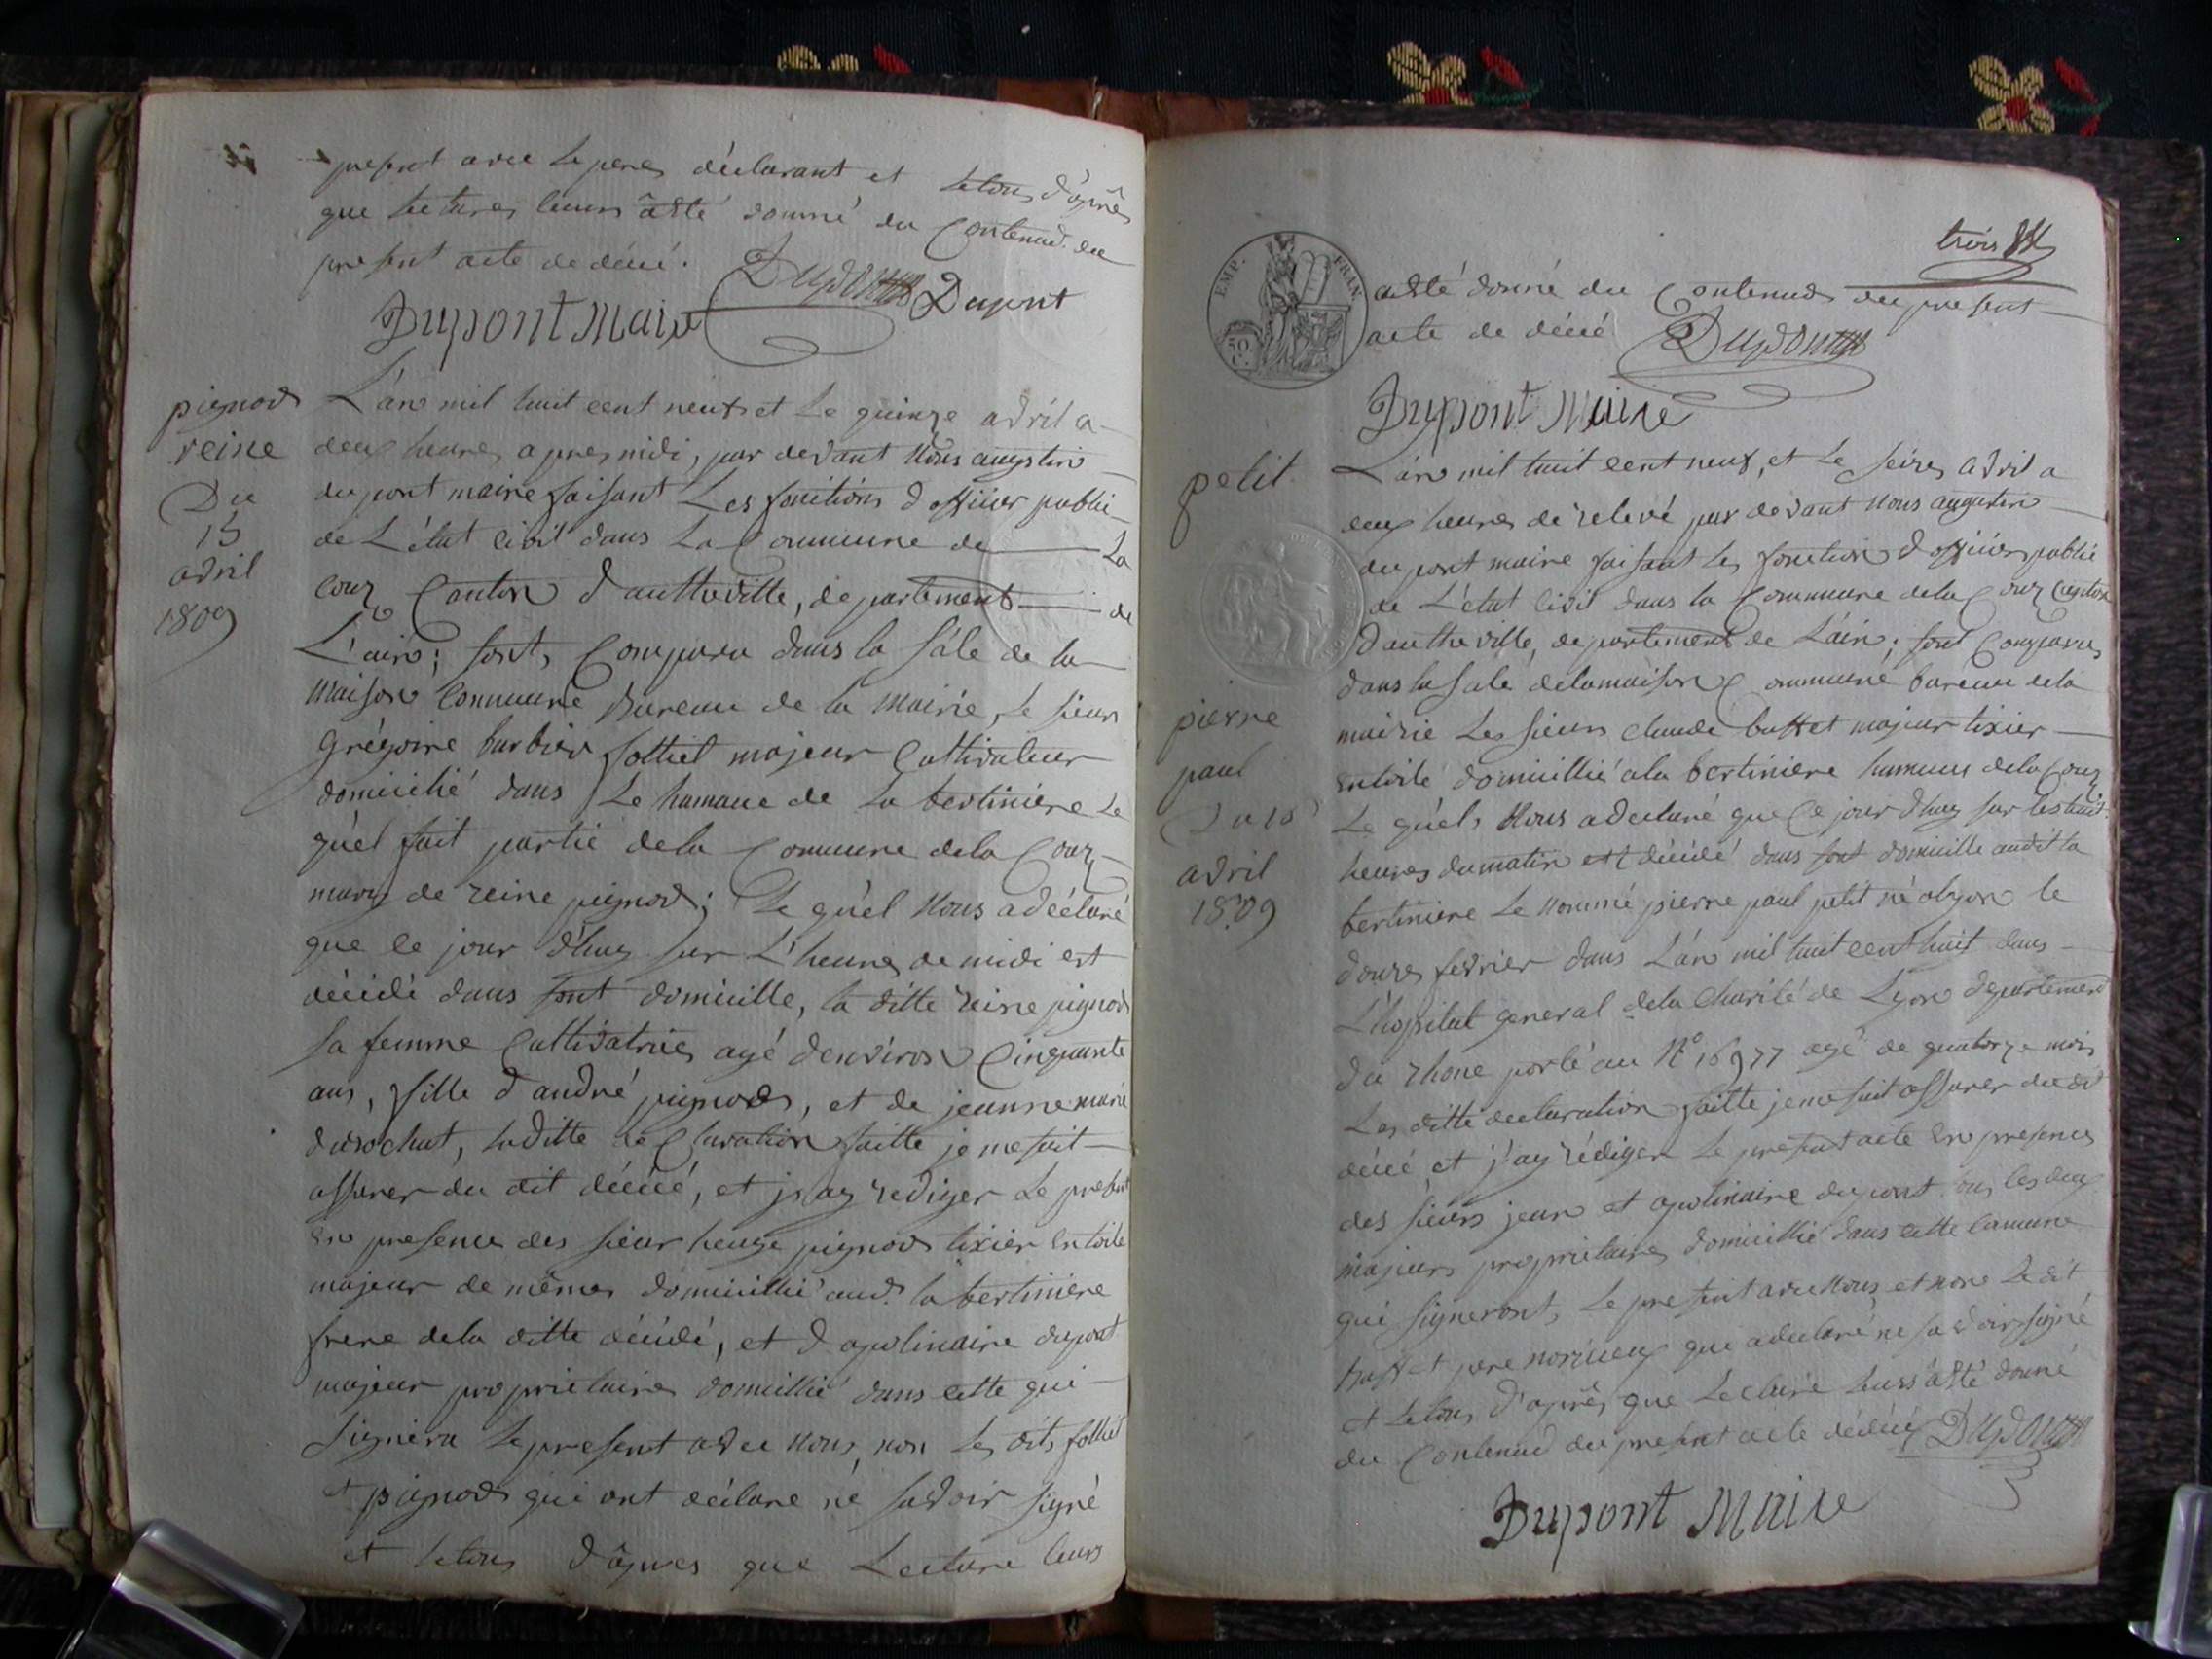 present avec le pere déclarant et letous d'après
que lecture leurs àété donné du Contenud du
present acte de décé.
Dupont
Dupont
Dupont Maire
pignod
reine
Du
15
avril
1809
L'an mil huit cent neuf et le quinze avril a
deux heures apres midi, par devant Nous augustin
dupont maire faisant Les fonctions d officier public
de L'état civil dans La Commune de La
Couz Canton d'autheville, departement de
L'ain; sont Comparu dans la sale de la
maison Commune Bureau de la Mairie, le sieur
Grégoire barbier folliet majeur Cultivateur
domicilié dans Le hamaue de La bertiniere Le
quel fait partie dela Commune dela Couz
mary de reine pignod; Le qu'el Nous a déclaré
que ce jour dhuy sur L'heures de midi est
décédé dans sont domicille, la ditte reine pignod
sa femme Cultivatrice agé denviron Cinquante
ans, fille d'andré pignod, et de jeanne marie
durochat, laditte de Claration faitte je me suit
assurer du dit décéé, et j'ay rediger Le present
En presence des sieur pignod tixier En toile
majeur de mêmes domicillié aud. la bertiniere
frere dela ditte décédé, et d'apolinaire dupont
majeur proprietaire domicillié dans cette qui
Signera Le present avec Nous, non Les dits folliet
et pignod qui ont déclare né savoir signé
et letous d'apres que Lecture leurs
trois
EMP. FRAN.
50 C.
aété donné du Contenud du present
acte de décé
Dupont
Dupont Maire
petit
pierre
paul
Du 16
avril
1809
L'an mil huit cent neuf, et Le seize avril a
deux heures de relevé par devant Nous augustin
dupont maire faisant les fonction d officier public
de L'état civil dans la Commune dela Couz Canton
d'autheville, departement de L'ain; sont Comparu
dans la sale delamaison Commune bureau dela
mairie Les sieurs claude buffet majeur tixier
en toile domicillié ala bertiniere hameau dela Couz
Le qu'el Nous a declaré que Ce jour dhuy sur les huit
heures du matin est décédé dans sont domicille audit la
bertiniere Le Nommé pierre paul petit né alyon le
douze fevrier dans L'an mil huit cent huit dans
L'hopital general dela Charité de Lyon departement
du rhone porté au N° 16977 agé de quatorze mois
Les ditte declaration faitte je me suit assurer du dit
décé, et j'ay rédiger Le present acte En presence
des sieurs jean et apolinaire dupont tous les deux
majeurs proprietaires domicillié dans cette Comune
qui signeront, Le present avec Nous et non Le dit
buffet pere qui a declaré ne savoir signé
et letous d'après que Lecture leurs àété donné
du Contenud du present acte de décé
Dupont
Dupont Maire